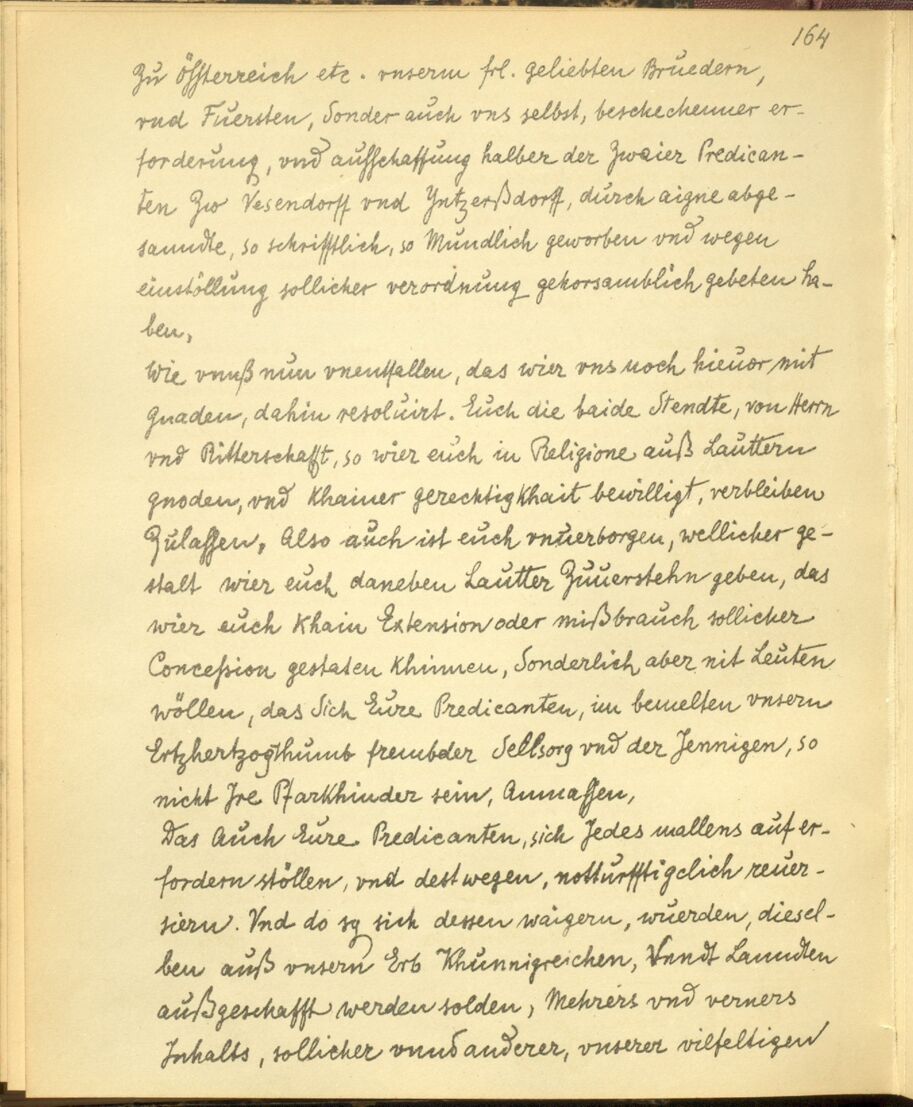 164
Zu Össterreich etc. vnserm frl. geliebten Bruedern,
vnd Fuersten, Sonder auch vns selbst, beschechenner er-
forderung, vnd aufschaffung halber der Zwaier Predican-
ten Zw Vesendorff vnd Yntzerßdorff, durch aigne abge-
sanndte, so schrifftlich, so Mundlich geworben vnd wegen
einstöllung sollicher verordnung gehorsamblich gebeten ha-
ben,
Wie vnnß nun vnentfallen, das wier vns noch hieuor mit
Gnaden, dahin resoluirt. Euch die baide Stendte, von Herrn
vnd Ritterschafft, so wier euch in Religione auß Lauttern
gnoden, vnd Khainer gerechtigKhait bewilligt, verbleiben
Zulassen, Also auch ist euch vnuerborgen, wellicher ge-
stalt wier euch daneben Lautter Zuuerstehn geben, das
wier euch Khain Extension oder mißbrauch sollicher
Concession gestaten Khinnen, Sonderlich aber nit Leuten
wöllen, das Sich Eure Predicanten, im bemelten vnsern
Ertzhertzogthumb frembder Sellsorg vnd der Jennigen, so
nicht Jre Pfarkhinder sein, Anmassen,
Das Auch Eure Predicanten, sich Jedes mallens auf er-
fordern stöllen, vnd destwegen, notturfftigclich reuer-
siern. Vnd do sy sich dessen waigern, wuerden, diesel-
ben auß vnsern Erb Khunnigreichen, Vnndt Lanndten
außgeschafft werden solden, Mehrers vnd verners
Inhalts, sollicher vnnd anderer, vnserer vilfeltigen